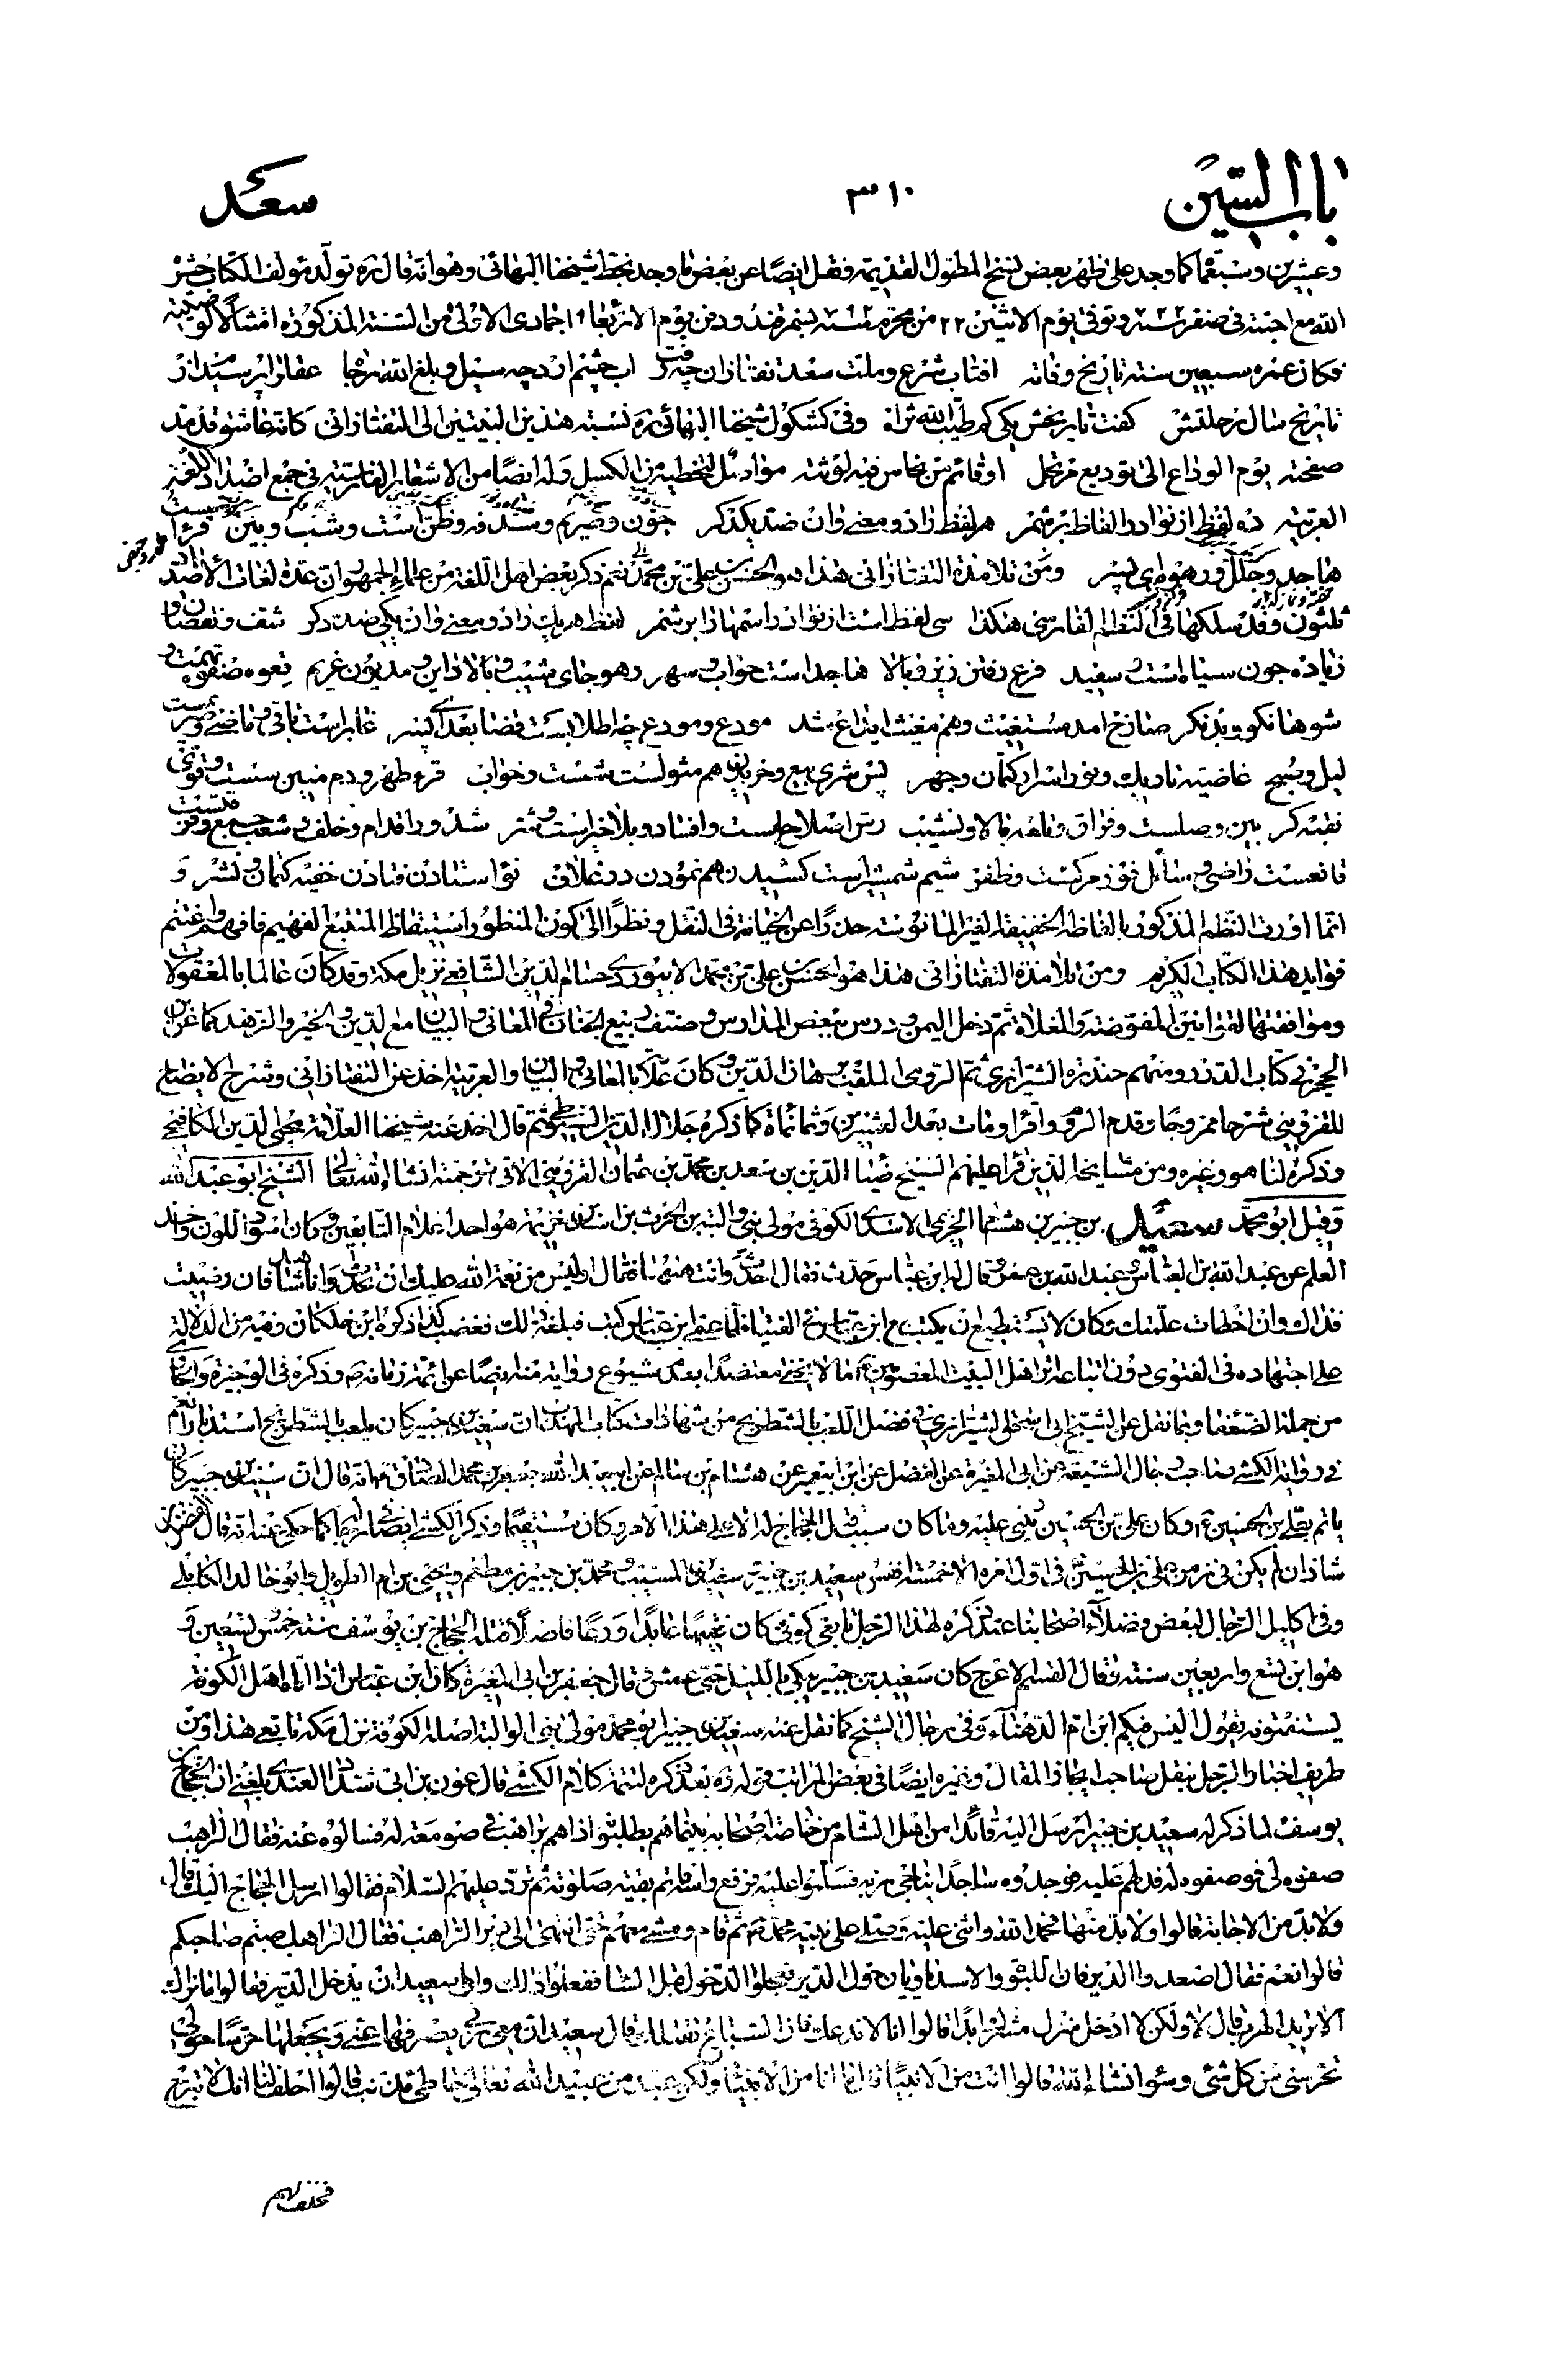 باب السين
٣١٠
سعد
وعشرين وسبعمائة كما وجد على ظهر بعض نسخ المطول القديمة ونقل ايضا عن بعض ما وجد بخط شيخنا البهائى وهو انه قال ره تولد مؤلف الكتاب حشره
الله مع احبته فى صفر سنة ٧٢٢ وتوفى يوم الاثنين ٢٢ من محرم سنة بسمرقند ودفن يوم الاربعاء ٩ جمادى الاولى من السنة المذكورة
فكان عمره سبعين سنة تاريخ وفاته افتاب شرع وملت سعد تفتازان چه رفت اب چشم از درچه سيل وبلغ الله عقل را پرسيدم از
تاريخ سال رحلتش كفت تاريخش يكى كم طيب الله ثراه وفى كشكول شيخنا البهائى ره نسبة هذين البيتين الى التفتازانى كانه عاشق قد مد
صفحته يوم الوداع الى توديع مرتحل او قائم من نعاس فيه لوثته مواصل لتمطيه من الكسل وله ايضا من الاشعار الفارسية فى جمع اضداد اللغة
العربية ده لفظ از نوادر الفاظ برشمر هر لفظ را دو معنى وان ضد يكدكر جون و صريم و سدفه و ظن است و شف و بين قرء
هاجد و جلل و رهوه اى پسر ومن تلامذة التفتازانى هذا هو الحسن بن على بن محمد نعم ذكر بعض اهل اللغة من علماء الجمهور ان عدة لغات الاضداد
ثلثون وقد سلكها فى النظم الفارسى هكذا سى لفظ است از نوادر اسمها را برشمر لفظ هر يك را دو معنى وان يكى ضد دكر شف و نقصان و
زياده جون سياه است و سفيد فرع رفتن زير و بالا هاجد است خواب و سهر رهو جاى شيب و بالا داين و مديون غريم
شوها نكو و بد نكر صارخ امد مستغيث و هم مغيث مودع و مودع چه اطلابست قضا بعد اى پسر غابر است باقى و ماضى
ليل و صبح غاضيه تاريك و نور اسرار كتمان و جهر پس شرى بيع و خريدن هم مثولست شست و خواب قرء طهر و دم منين سست و قوى
نقبه كر بين وصلست و فراق و تلعه بالا و نشيب رس اصلاحست و افساد و بلا خير است و شر شد ورا قدام و خلف و شعب جمع و فرق
قانعست راضى و سائل فوز مركست و ظفر شيم شمشير است كشيدن هم نمودن در غلاف نوء استادن فتادن خفيه كتمان و نشر و
انما اوردت النظم المذكور بالفاظه الخفيفة الغير المانوسة حذرا عن الخيانة فى النقل ونظرا الى كون المنظور استيقاظ المتتبع الفهيم فافهم واغتنم
فوايد هذا الكتاب الكريم ومن تلامذة التفتازانى هذا هو الحسن بن على بن محمد الابيوردى حسام الدين الشافعى نزيل مكة وقد كان عالما بالمعقولات
وموافقتها لقوانين المفوضة والغلاة ثم دخل اليمن ودرس ببعض المدارس وصنف ربيع الجنان فى المعانى والبيان مع الدين والخير والزهد كما عن ابن
الحجر فى كتاب الدرر ومنهم حيدره الشيرازى ثم الرومى الملقب ببرهان الدين وكان علامة بالمعانى والبيان والعربية اخذ عن التفتازانى وشرح الايضاح
للقزوينى شرحا ممزوجا وقدم الروم واقرأ ومات بعد العشرين وثمانمأة كما ذكره جلال الدين السيوطى ثم قال اخذ عنه شيخنا العلامة محيى الدين الكافيجى
وذكره لنا هو وغيره ومن مشايخه الذين قرأ عليهم الشيخ ضياء الدين بن سعد بن محمد بن عثمان القزوينى الاتى ترجمته انشاء الله تعالى الشيخ ابو عبد الله
وقيل ابو محمد سعيد بن جبير بن هشام الاسدى الكوفى مولى بنى والبة بن الحرث بن اسد بن خزيمة هو احد اعلام التابعين وكان اسود اللون واخذ
العلم عن عبد الله بن العباس وعبد الله بن عمر وقال له ابن عباس حدث فقال احدث وانت هيهنا فقال اوليس من نعمة الله عليك ان تحدث وانا شاهد فان اصبت
فذاك وان اخطات علمتك وكان لا يستطيع ان يكتب مع ابن عباس فى الفتيا فلما عمى ابن عباس كتب فبلغه ذلك فغضب كذا ذكره ابن خلكان وفيه من الدلالة
على اجتهاده فى الفتوى دون اتباعه لاهل البيت المعصومين ما لا يخفى معتضدا بعدم شيوع رواية منه ايضا عن ائمة زمانه وذكره فى الوجيزة والحاوى
من جملة الضعفاء وبما نقل عن الشيخ ابى اسحق الشيرازى فى فصل اللعب بالشطرنج من شهادات كتاب المهذب ان سعيد بن جبير كان يلعب بالشطرنج استدبارا نعم
فى رواية الكشى صاحب رجال الشيعة عن ابى المغيرة عن الفضل عن ابن ابى عمير عن هشام بن سالم عن ابى عبد الله جعفر بن محمد الصادق ع انه قال ان سعيد بن جبير كان
ياتم بعلى بن الحسين ع وكان على بن الحسين يثنى عليه وما كان سبب قتل الحجاج له الا على هذا الامر وكان مستقيما وذكر الكشى ايضا فى رجاله كما حكى عنه انه قال الفضل بن
شاذان لم يكن فى زمن على بن الحسين فى اول امره الا خمسة انفس سعيد بن جبير سعيد بن المسيب محمد بن جبير بن مطعم ويحيى بن ام الطويل وابو خالد الكابلى
وفى اكليل الرجال لبعض فضلاء اصحابنا عند ذكره لهذا الرجل تابعى كوفى كان فقيها عابدا ورعا فاضلا قتله الحجاج بن يوسف سنة خمس وتسعين و
هو ابن تسع واربعين سنة وقال القسم الاعرج كان سعيد بن جبير يبكى بالليل حتى عمش وقال جعفر بن ابى المغيرة كان ابن عباس اذا اتاه اهل الكوفة
يستفتونه يقول اليس فيكم ابن ام الدهناء وفى رجال الشيخ كما نقل عنه سعيد بن جبير ابو محمد مولى بنى الوالبة اصله الكوفة نزل مكة تابعى هذا ومن
طريف اخبار الرجل بنقل صاحب المقال وغيره ايضا فى بعض المراتب قوله ره بعد ذكره لتتمة كلام الكشى قال عون بن ابى شداد العبدى بلغنى ان الحجاج بن
يوسف لما ذكر له سعيد بن جبير ارسل اليه قائدا من اهل الشام من خاصة اصحابه فبينما هم يطلبونه اذا هم براهب فى صومعة له فسالوه عنه فقال الراهب
صفوه لى فوصفوه له فدلهم عليه فوجدوه ساجدا يناجى ربه فسلموا عليه فرفع راسه فاتم بقية صلوته ثم رد عليهم السلام فقالوا ارسل الحجاج اليك قال
ولابد من الاجابة قالوا ولابد منها فحمد الله واثنى عليه وصلى على نبيه محمد ص ثم قام ومشى معهم حتى انتهى الى دير الراهب فقال الراهب اصبتم صاحبكم
قالوا نعم فقال اصعدوا الدير فان اللبوة والاسد ياويان حول الدير فعجلوا الدخول قبل المسا ففعلوا ذلك وابى سعيد ان يدخل الدير فقالوا ما نراك
الا تريد الهرب قال لا ولكن لا ادخل منزل مشرك ابدا قالوا انا لا ندعك فان السباع تقتلك قال سعيد ان معى ربى يصرفها عنى ويجعلها حرسا حولى
تحرسنى من كل شئ وسوء انشاء الله قالوا انت من الانبياء قال ما انا من الانبياء ولكن عبد من عبيد الله تعالى خاطئ مذنب قالوا احلف لنا انك لا تبرح
فحلف لهم